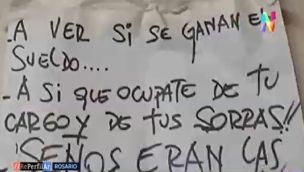 -A VER SI SE GANAN EL
SUELDO....
-A SI QUE OCUPATE DE TU
CARGO Y DE TUS SORRAS!!
'SEÑOS ERAN LAS
RePerfilAr ROSARIO